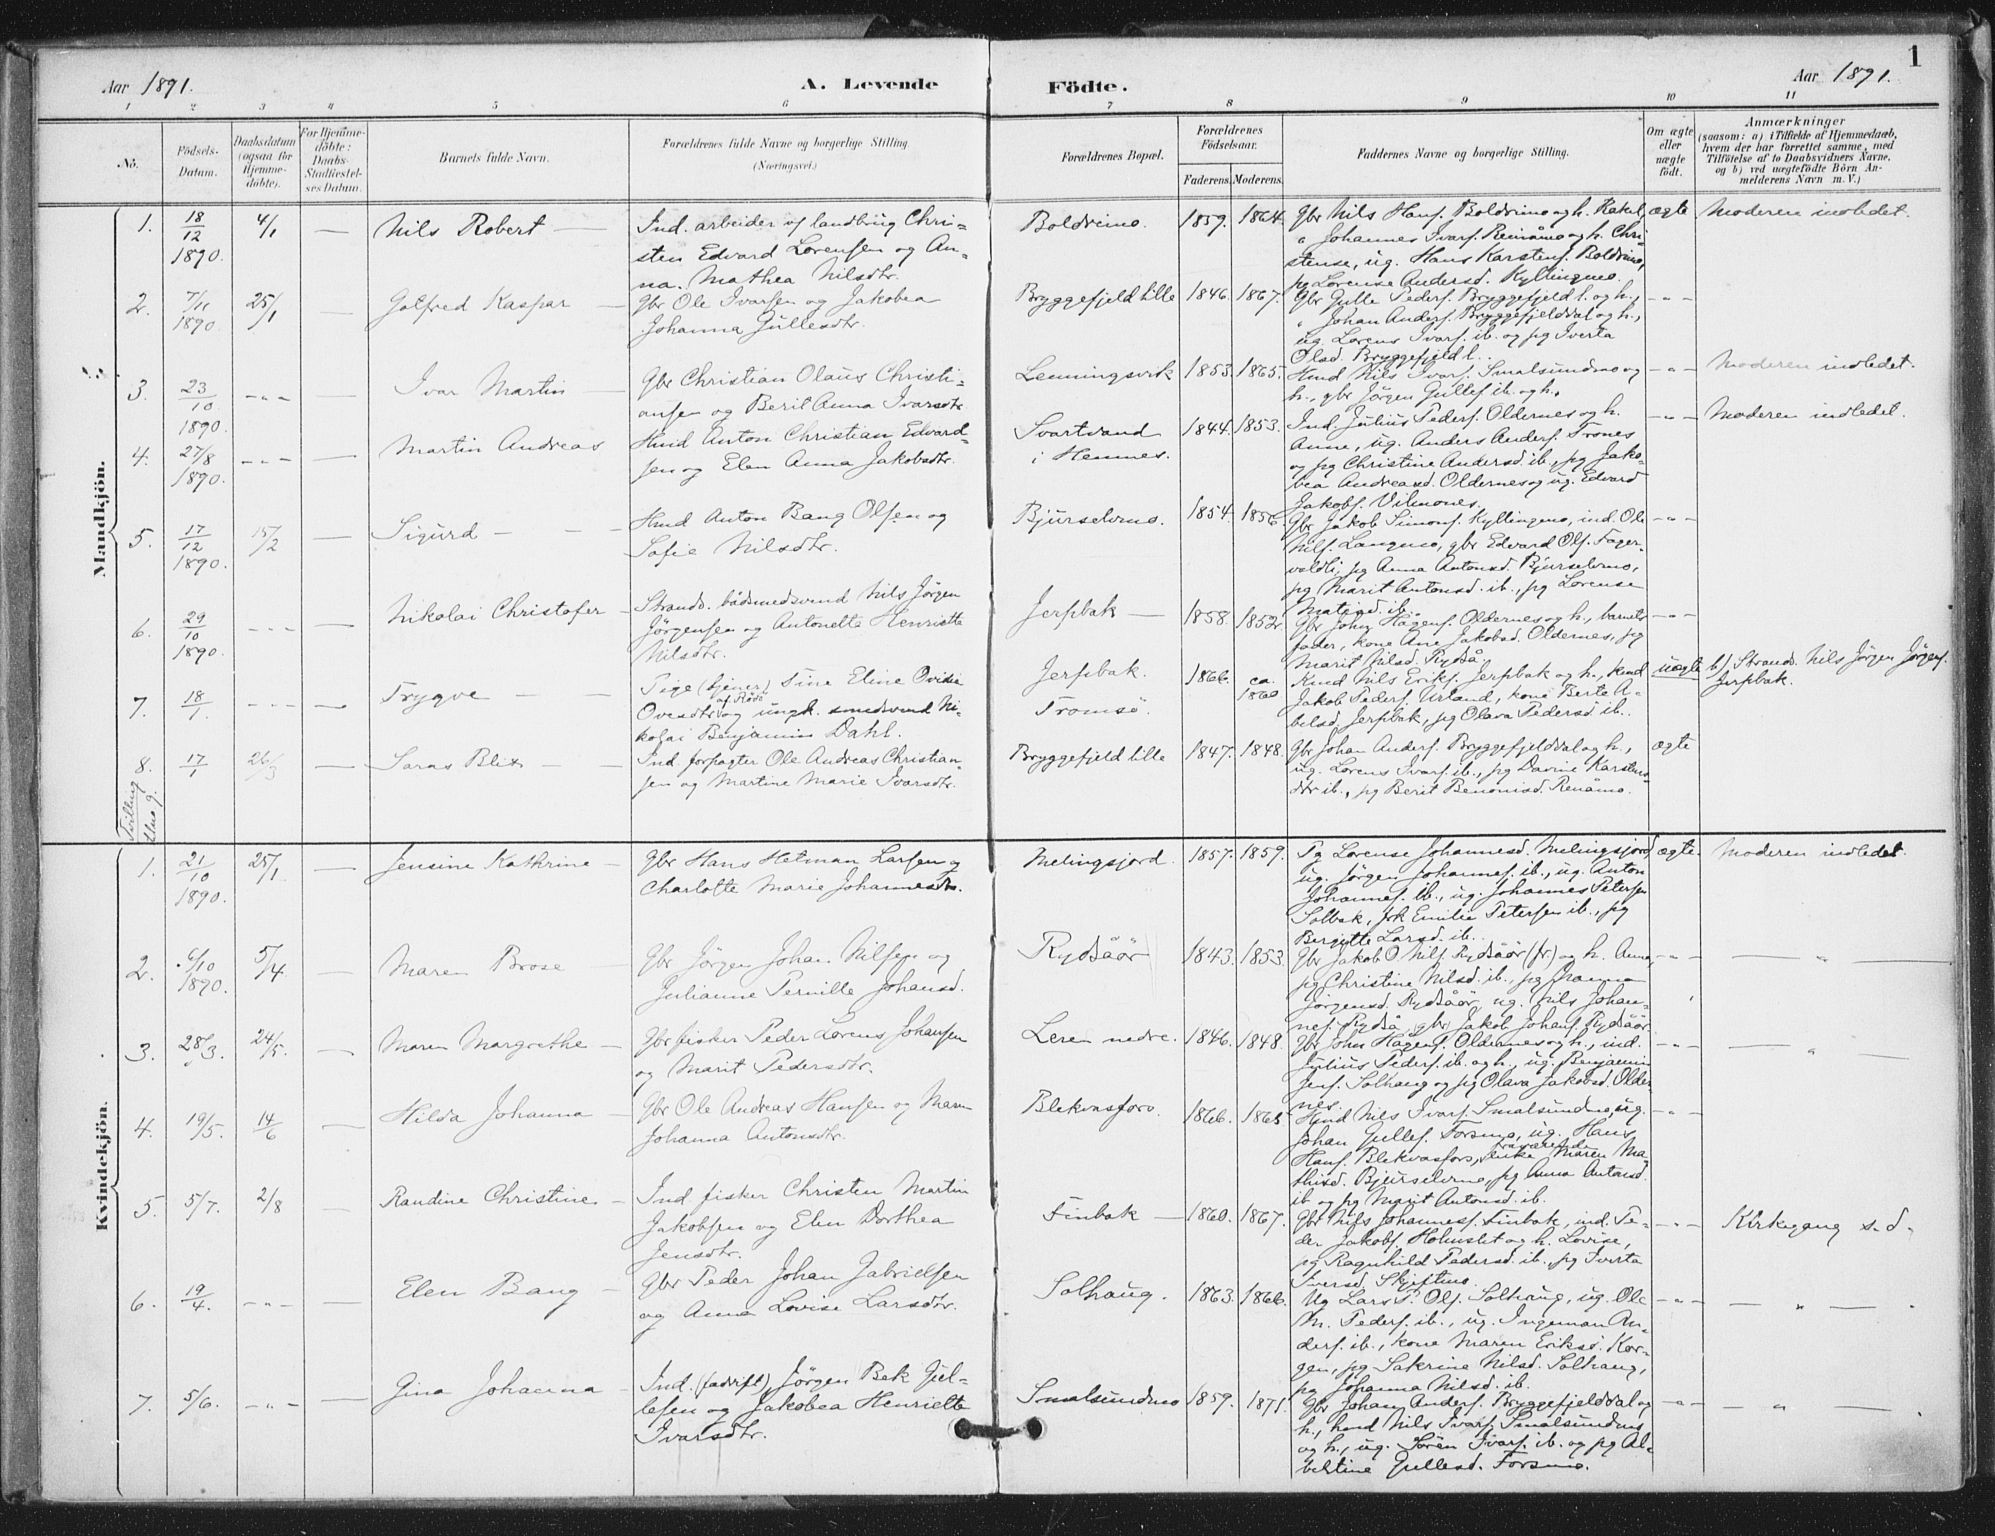 1
Aar 1891.
A. Levende
Födte.
Aar 1891.
1 2 3 4 5 6 7 8 9 10 11
No.
Födsels-
Datum.
Daabsdatum
(ogsaa for
Hjemme-
döbte).
For Hjemme-
döbte:
Daabs-
Stadfæstel-
ses Datum.
Barnets fulde Navn.
Forældrenes fulde Navne og borgerlige Stilling.
(Næringsvei.)
Forældrenes Bopæl.
Forældrenes
Födselsaar.
Faderens. Moderens.
Faddernes Navne og borgerlige Stilling.
Om ægte
eller
uægte
födt.
Anmærkninger
(saasom: a) i Tilfælde af Hjemmedaab,
hvem der har forrettet samme, med
Tilföielse af to Daabsvidners Navne,
og b) ved uægtefödte Börn An-
melderens Navn m. V.)
Mandkjön.
1.
18
12
1890.
4/1
—
Nils Robert —
Ind. arbeider af landbrug Chri-
sten Edvard Lorensen og An-
na. Mathea Nilsdtr.
Boldreimo.
1859. 1864.
Gbr Nils Hans. Boldrimo og h. Rakel,
" Johannes Ivars. Reinåmo og h. Chri-
stense, ug. Hans Karstens. Boldrimo,
pg Lorense Andersd. Kyllingmo.
ægte
Moderen indledet.
2.
7/11
1890.
25/1
—
Gotfred Kaspar —
Gbr Ole Ivarsen og Jakobea
Johanna Gullesdtr.
Bryggefjeld lille
1846. 1867.
Gbr Gulle Peders. Bryggefjeld l. og h.,
" Johan Anders. Bryggefjelddal og h.,
ug. Lorens Ivars. ib. og pg Iverta
Olsd. Bryggefjeld l..
- " -
3.
23
10
1890.
- " -
—
Ivar Martin —
Gbr Christian Olaus Christi-
ansen og Berit Anna Ivarsdtr
Lenningsvik
1853. 1865.
Hmd Nils Ivars. Smalsundmo og
h., gbr Jörgen Gulles ib. og h.
- " -
Moderen indledet.
4.
27/8
1890.
- " -
—
Martin Andreas
Hmd Anton Christian Edvard-
sen og Elen Anna Jakobsdtr.
Svartvand
i Hemnes.
1844. 1853.
Ind. Julius Peders. Oldernes og h.
Anne, ug. Anders Anders. Trones
og pg Christine Andersd. ib., pg Jako-
bea Andreasd. Oldernes og ug. Edvard
Jakobs. Vilmones.
- " -
Moderen indledet.
5.
17
12
1890.
15/2
—
Sigurd — —
Hmd Anton Bang Olsen og
Sofie Nilsdtr.
Bjurselvmo.
1854. 1856.
Gbr Jakob Simons. Kyllingmo, ind. Ole
Nils. Langmo, gbr Edvard Ols. Fager-
voldli, pg Anna Antonsd. Bjurselvmo,
pg Marit Antonsd. ib., pg Lorense
ib.
- " -
6.
29
10
1890.
- " -
—
Nikolai Christofer —
Strands. bådsmedsvend Nils Jörgen
Jörgensen og Antonette Henriette
Nilsdtr.
Jerpbak —
1858. 1852.
Gbr John Hågens. Oldernes og h., barnets
fader, kone Ane Jakobsd. Oldernes, pg
Marit Nilsd. Rydså.
- " -
7.
18
1
- " -
—
Trygve — —
Pige (tjener) Sine Eline Ovidia
af Rödö
Ovesdtr og ungk. smedsvend Ni-
kolai Benjamin Dahl.
Jerpbak.
Tromsö.
1866. ca.
1860
Hmd Nils Eriks. Jerpbak og h., hmd
Jakob Peders. Urland, kone Berte A-
belsd. Jerpbak, pg Olava Pedersd. ib.
uægte
b) Strands. Nils Jörgen Jörgens.
Jerpbak.
8.
Tvilling
med 9.
17
1
26/3
—
Saras Blix — —
Ind. forpagter Ole Andreas Christian-
sen og Martine Marie Ivarsdtr.
Bryggefjeld lille
1847. 1848.
Gbr Johan Anders. Bryggefjelddal og h.,
ug. Lorens Ivars. ib., pg Davine Karstens-
dtr ib., pg Berit Benonisd. Renåmo.
ægte
Kvindekjön.
1.
21
10
1890.
25/1
—
Jensine Kathrine —
Gbr Hans Hetman Larsen og
Charlotte Marie Johannesdtr.
Melingsjord.
1857. 1859.
Pg Lorense Johannesd. Melingsjord,
ug. Jörgen Johannes. ib., ug. Anton
Johannes. ib., ug. Johannes Petersen
Solbak, frk Emilie Petersen ib., pg
Bergitte Larsd. ib..
ægte.
Moderen indledet.
2.
6/10
1890.
5/4.
—
Maren Brose —
Gbr Jörgen Johan Nilsen og
Julianne Pernille Johansd.
Rydsåör
1843. 1853.
Gbr Jakob O Nils. Rydsåör (fr) og h. Anna,
pg Christine Nilsd. ib., pg Hanna
Jörgensd. Rydsåör, ug. Nils Johan-
nes. Rydså, gbr Jakob Johans. Rydsåör.
- " -
— " —
3.
28/3.
24/5.
—
Maren Margrethe —
Gbr fisker Peder Lorens Johansen
og Marit Pedersdtr.
Leren nedre.
1846. 1848.
Gbr John Hågens. Oldernes og h., ind.
Julius Peders. ib. og h., ug. Benjamin
Jens. Solhaug og pg Olava Jakobsd. Older-
nes.
- " -
— " —
4.
19/5.
14/6
—
Hilda Johanna —
Gbr Ole Andreas Hansen og Maren
Johanna Antonsdtr.
Blekvasfors.
1866. 1865
Hmd Nils Ivars. Smalsundmo, ug.
Johan Gulles. Forsmo, ug. Hans
Hans. Blekvasfors, enke Maren Ma-
thisd. Bjurselvmo, pg Anna Antonsd.
ib. og pg Marit Antonsd. ib.
- " -
5.
5/7.
2/8
—
Randine Christine —
Ind fisker Christen Martin
Jakobsen og Elen Dorthea
Jensdtr.
Finbak —
1860. 1867.
Gbr Nils Johannes. Finbak, ind. Pe-
der Jakobs. Holmslet og h. Lovise,
pg Ragnhild Pedersd. ib., pg Iverta
Iversd. Skjeftmo.
- " -
Kirkegang s. d.
6.
19
4.
- " -
—
Elen Bang —
Gbr Peder Johan Gabrielsen
og Anna Lovise Larsdtr.
Solhaug.
1863. 1866.
Ug Lars P. Ols. Solhaug, ug. Ole
M. Peders. ib., ug. Ingeman An-
ders. ib., kone Maren Eriksd. Kor-
gen, pg Sakrine Nilsd. Solhaug,
pg Johanna Nilsd. ib.
- " -
— " — .
7.
5/6.
- " -
—
Gina Johanna —
Ind. (fædrift) Jörgen Bek Gul-
lesen og Jakobea Henriette
Ivarsdtr.
Smalsundmo
1859. 1871.
Gbr Johan Anders. Bryggefjelddal og
h., hmd Nils Ivars. Smalsundmo
og h., ug. Sören Ivars. ib. og pg Al-
bertine Gullesd. Forsmo.
- " -
— " —